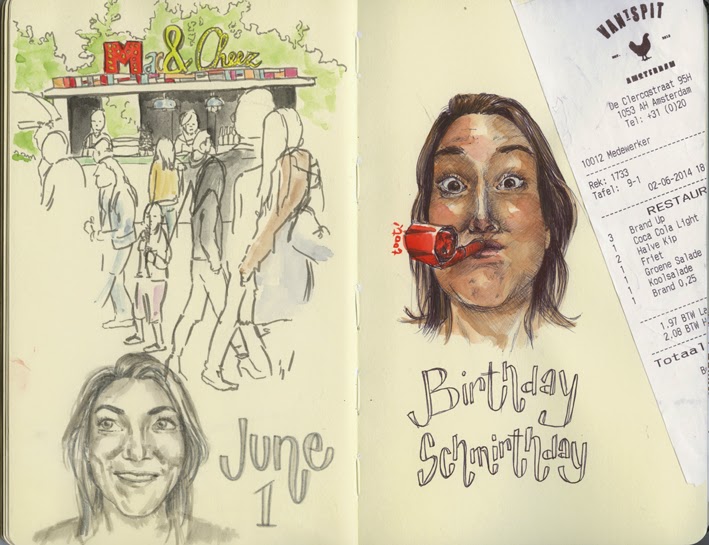 Mac & Cheez
June
1
toot!
Birthday
Schmirthday
VAN'T SPIT
AMSTERDAM
De Clercqstraat 95H
1053 AH Amsterdam
Tel: +31 (0)20
10012 Medewerker
Rek: 1733
Tafel: 9-1 02-06-2014 18
RESTAUR
3 Brand Up
Coca Cola Light
Halve Kip
Friet
Groene Salade
Koolsalade
Brand 0,25
1.97 BTW La
2.08 BTW H
Totaal